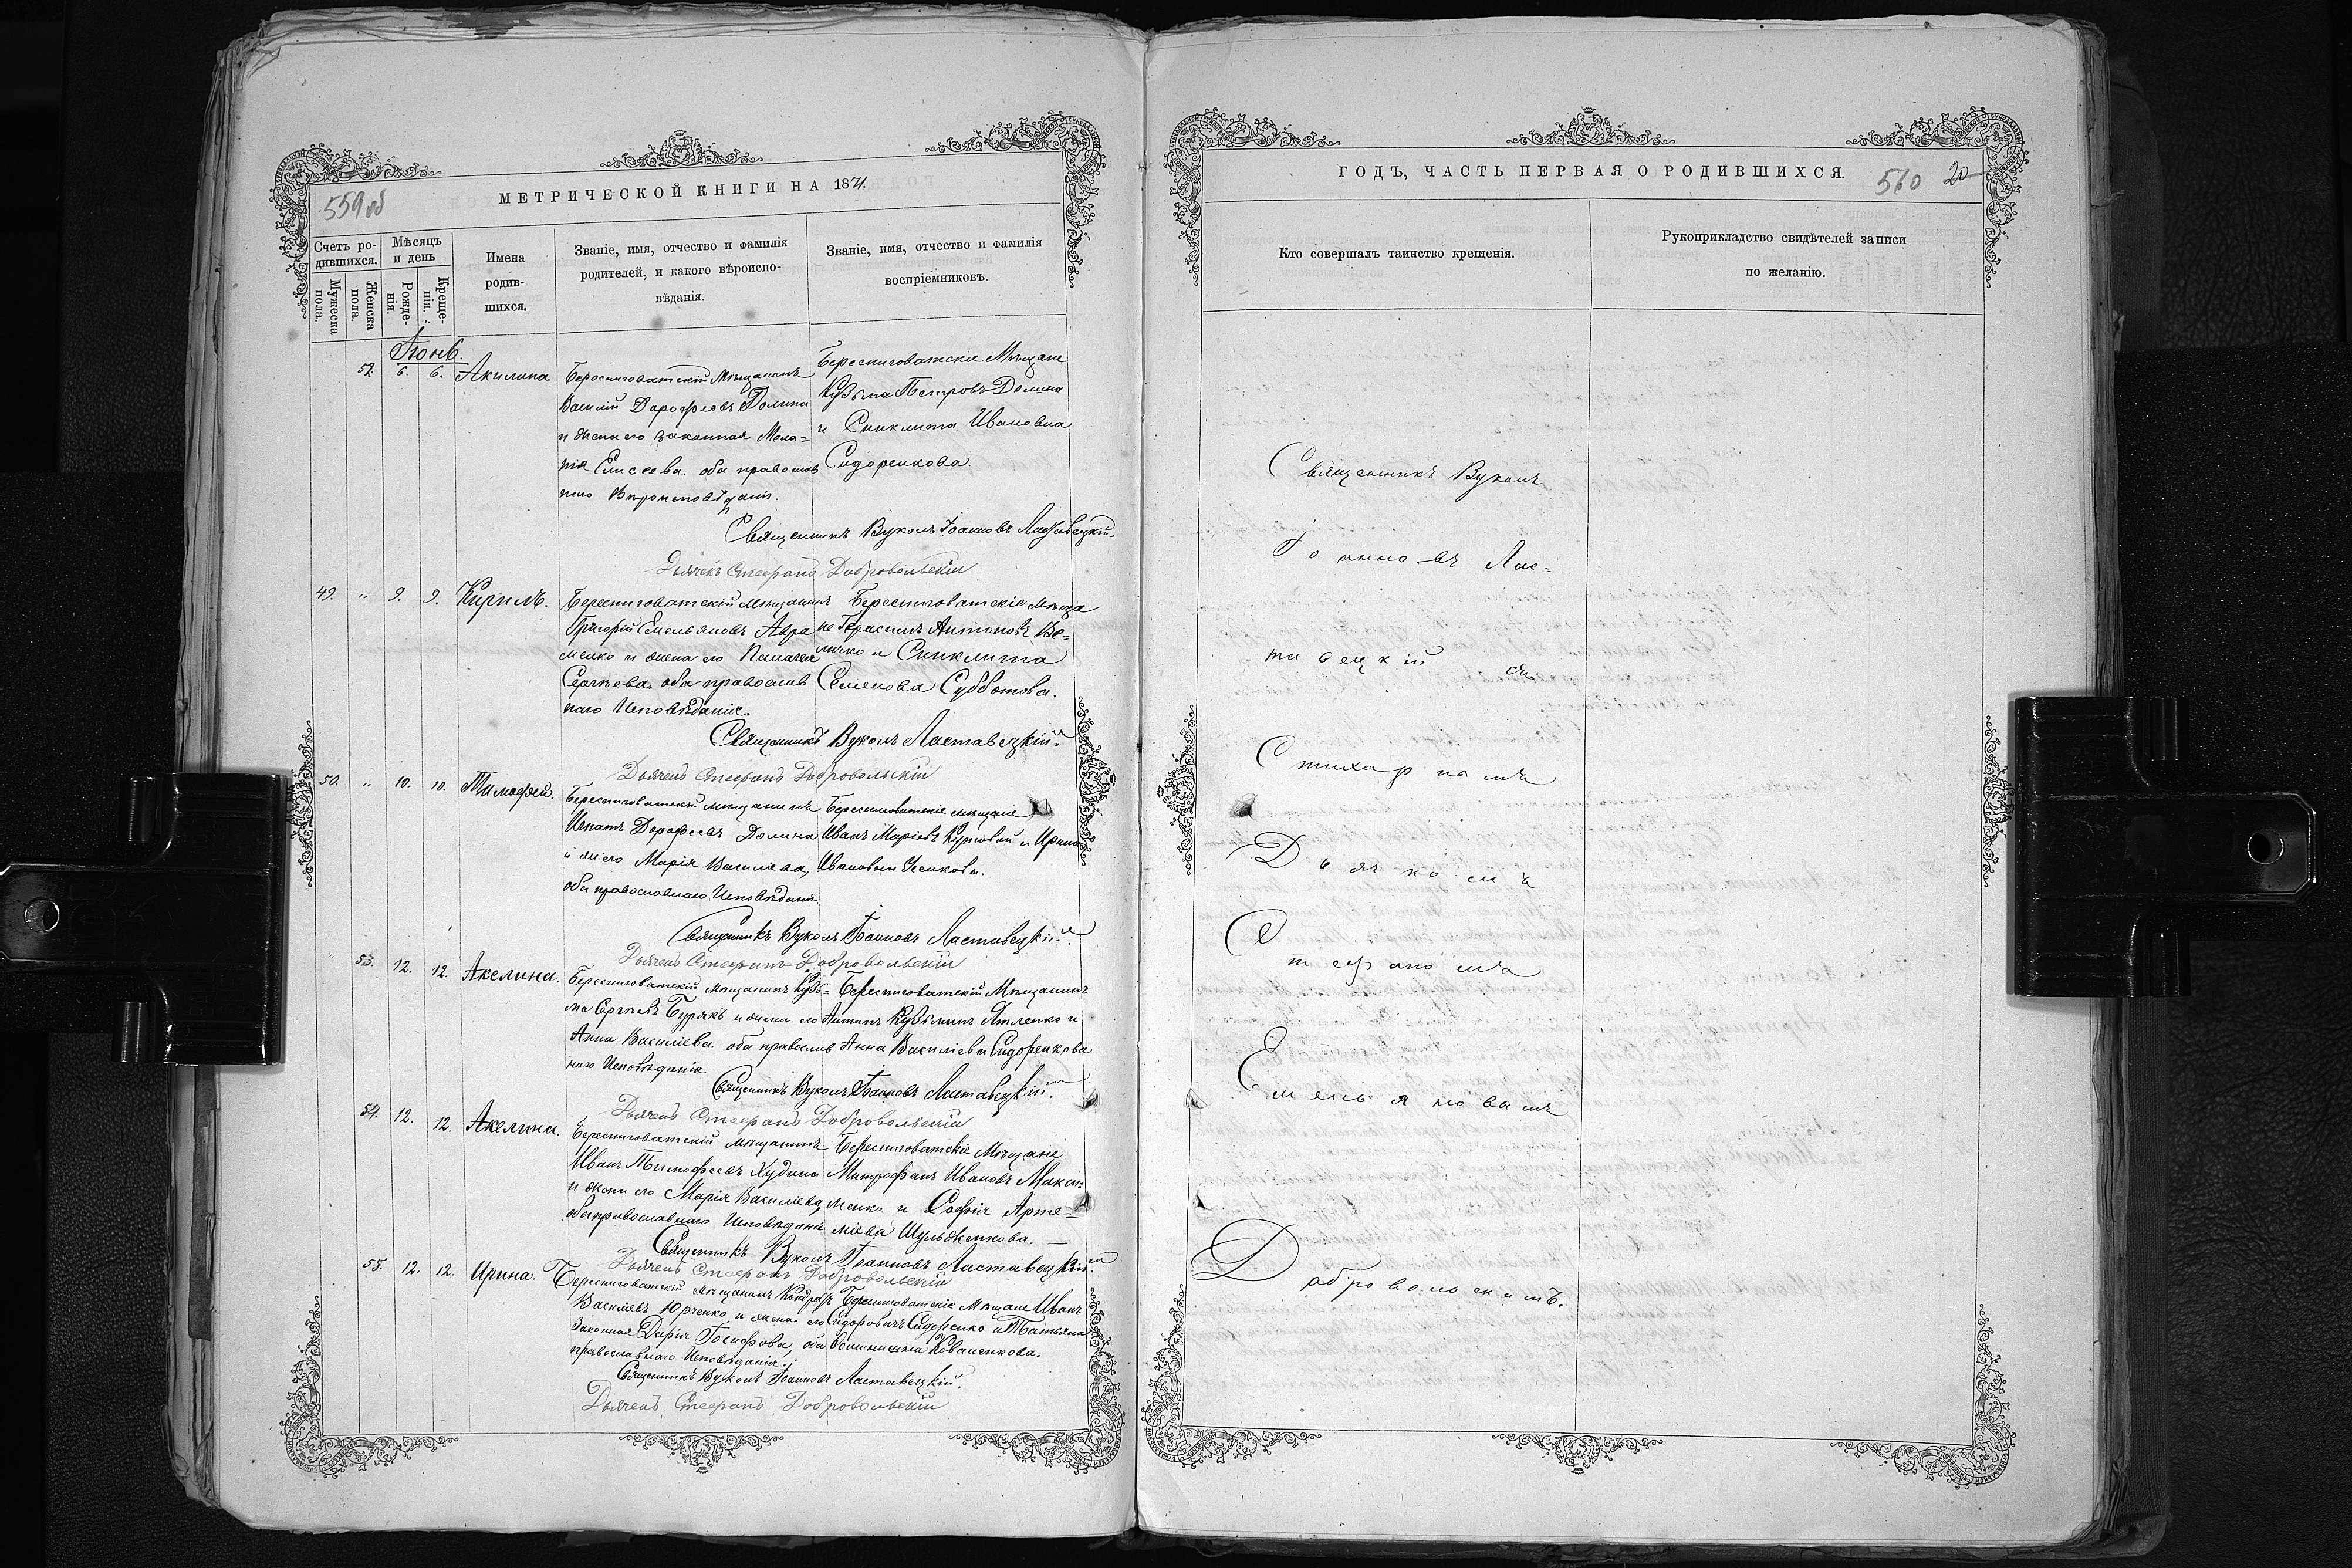 559 об
МЕТРИЧЕСКОЙ КНИГИ НА 1871.
Счетъ ро-
дившихся.
Мужеска
пола.
Женска
пола.
Мѣсяцъ
и день
Рожде-
нія.
Креще-
нія.
Имена
родив-
шихся.
Званіе, имя, отчество и фамилія
родителей, и какого вѣроиспо-
вѣданія.
Званіе, имя, отчество и фамилія
воспріемниковъ.
Іюнь.
52. 6. 6. Акилина
Берестоватскій Мѣщанинъ
Василій Дорофеевъ Долина
и жена его законная Мела=
нія Елисеева. оба православ
наго Вѣроисповѣданія.
Берестоватскіе Мѣщане
Кузьма Петровъ Долина
и Синклита Ивановна
Сидоренкова.
Священникъ Вуколъ Іоанновъ Ластавецкій.
Дьячекъ Стефанъ Добровольскій
49. " 9. 9. Кирилъ.
Берестоватскій мѣщанинъ
Григорій Емельяновъ Авра
менко и жена его Пелагея
Сергѣева. оба православ
наго Исповѣданія.
Берестоватскіе мѣща
не Герасимъ Антоновъ Ве=
личко и Синклита
Семенова Субботова.
Священникъ Вуколъ Ластавецкій.
Дьячекъ Стефанъ Добровольскій
50. " 10. 10. Тимофей.
Берестоватскій мѣщанинъ
Игнатъ Дорофеевъ Долина
и жена его Марія Василиева,
оба православнаго Исповѣданія.
Берестоватскіе мѣщане
Иванъ и Ирина
Ивановна
Священникъ Вуколъ Іоанновъ Ластавецкій.
Дьячекъ Стефанъ Добровольскій
53. 12. 12. Акелина.
Берестоватскій мѣщанинъ Кузь=
ма Сергѣевъ Бурякъ и жена его
Анна Василіева. оба православ
наго Исповѣданія
Берестоватскій Мѣщанинъ
Антипъ Кузьминъ и
Анна Василіева Сидоренкова
Священникъ Вуколъ Іоанновъ Ластавецкій.
Дьячекъ Стефанъ Добровольскій
54. 12. 12. Акелина.
Берестоватскій мѣщанинъ
Иванъ Тимофеевъ Худина
и жена его Марія Василіева,
оба православнаго Исповѣданія
Берестоватскіе Мѣщане
Митрофанъ Ивановъ Макси=
менко и Софія Арте=
міева Шульженкова.
Священникъ Вуколъ Іоанновъ Ластавецкій.
Дьячекъ Стефанъ Добровольскій
55. 12. 12. Ирина.
Берестоватскій мѣщанинъ Кондратъ
Василіевъ Юрченко и жена его
Законная Дарія Іосифова, оба
православнаго Исповѣданія.
Берестоватскіе Мѣщане Иванъ
Сидоровичъ Сидоренко и Татьяна
Коваленкова.
Священникъ Вуколъ Іоанновъ Ластавецкій.
Дьячекъ Стефанъ Добровольскій
ГОДЪ, ЧАСТЬ ПЕРВАЯ О РОДИВШИХСЯ.
560 20
Кто совершалъ таинство крещенія.
Рукоприкладство свидѣтелей записи
по желанію.
Священникъ Вуколъ
Іоанновъ Лас-
тавецкій съ
Стихарнымъ
Дьячкомъ
Стефаномъ
Емельяновымъ
Добровольскимъ.